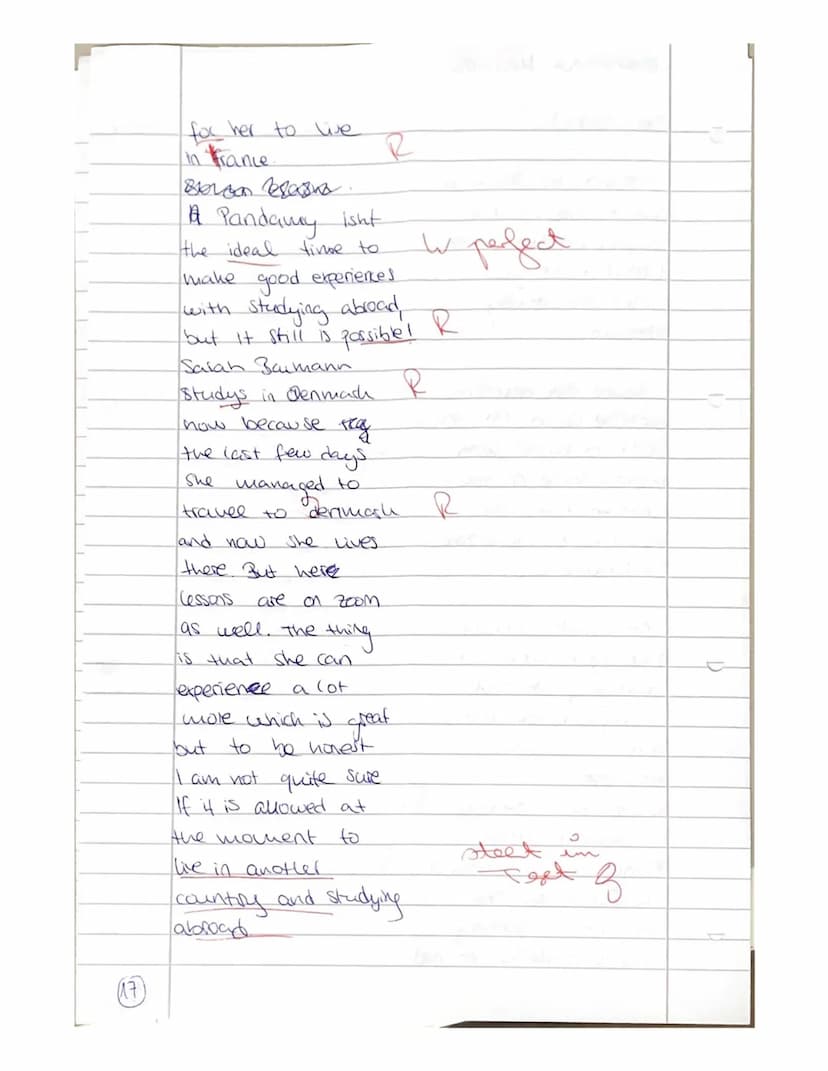 for her to live
in France. R
A Pandamy isnt
the ideal time to W perfect
make good experiences
with studying abroad,
but it still is possible! R
Sarah Baumann
studys in Denmark R
now because
the last few days
she managed to
travel to denmark R
and now she lives
there. But here
lessons are on zoom
as well. The thing
is that she can
experience a lot
more which is great
but to be honest
I am not quite sure
If it is allowed at
the moment to
live in another steet im
country and studying Text
abroad
17